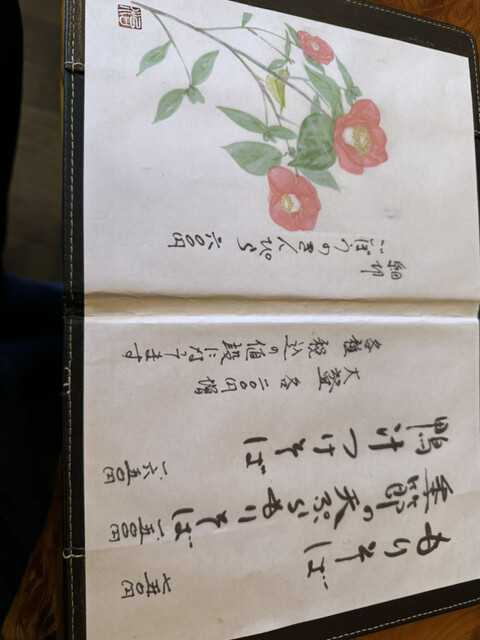 もりそば 七五〇円
季節の天ぷらもりそば 一五〇〇円
鴨汁つけそば 一六五〇円
大盛 各二〇〇円増
各種税込の値段になってます
細切
ごぼうのきんぴら 六〇〇円